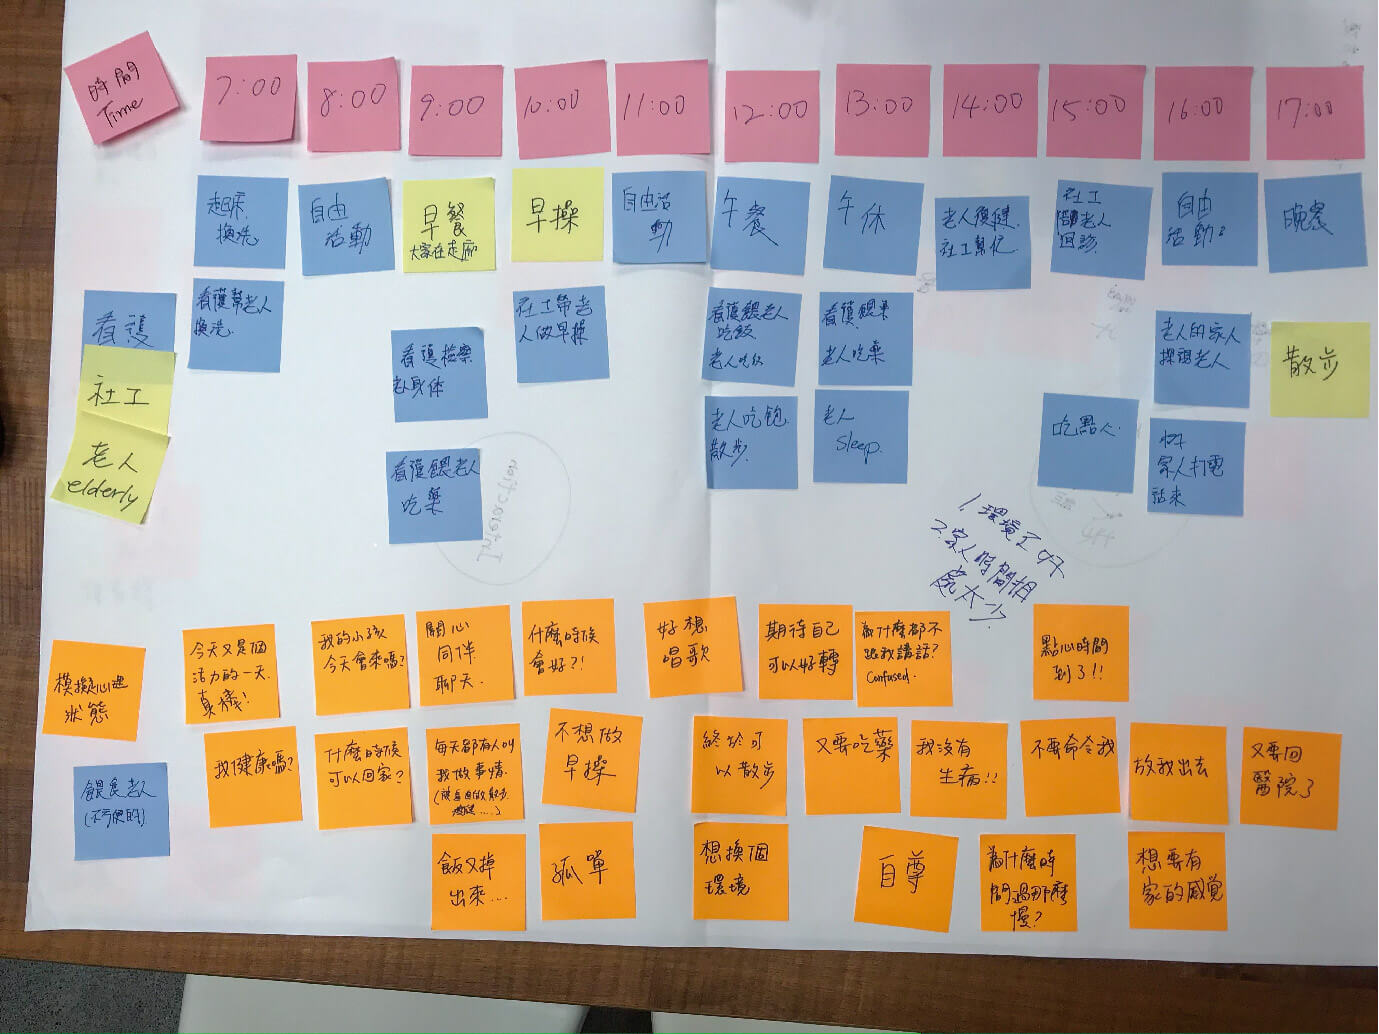 時間
Time
7:00
8:00
9:00
10:00
11:00
12:00
13:00
14:00
15:00
16:00
17:00
起床
換洗
自由
活動
早餐
大家在走廊
早操
自由活
動
午餐
午休
老人復健
社工幫忙
社工
陪老人
回診
自由
活動
晚餐
看護
社工
老人
elderly
看護幫老人
換洗
看護檢察
老身体
看護餵老人
吃藥
社工帶老
人做早操
看護餵老人
吃飯
老人吃飯
老人吃飽
散步
看護餵藥
老人吃藥
老人
sleep.
吃點心
老人的家人
探視老人
家人打電
話來
散步
Interaction
1.環境不好
2.家人時間相
處太少
模擬心理
狀態
今天又是個
活力的一天.
真棒!
我的小孩
今天會來嗎?
關心
同伴
聊天.
什麼時候
會好?!
好想
唱歌
期待自己
可以好轉
為什麼都不
跟我講話?
Confused.
點心時間
到了!!
我健康嗎?
什麼時候
可以回家?
每天都有人叫
我做事情.
不想做
早操
終於可
以散步
又要吃藥
我沒有
生病!!
不要命令我
放我出去
又要回
醫院了
餵食老人
(不方便的)
飯又掉
出來...
孤單
想換個
環境
自尊
為什麼時
間過那麼
慢?
想要有
家的感覺